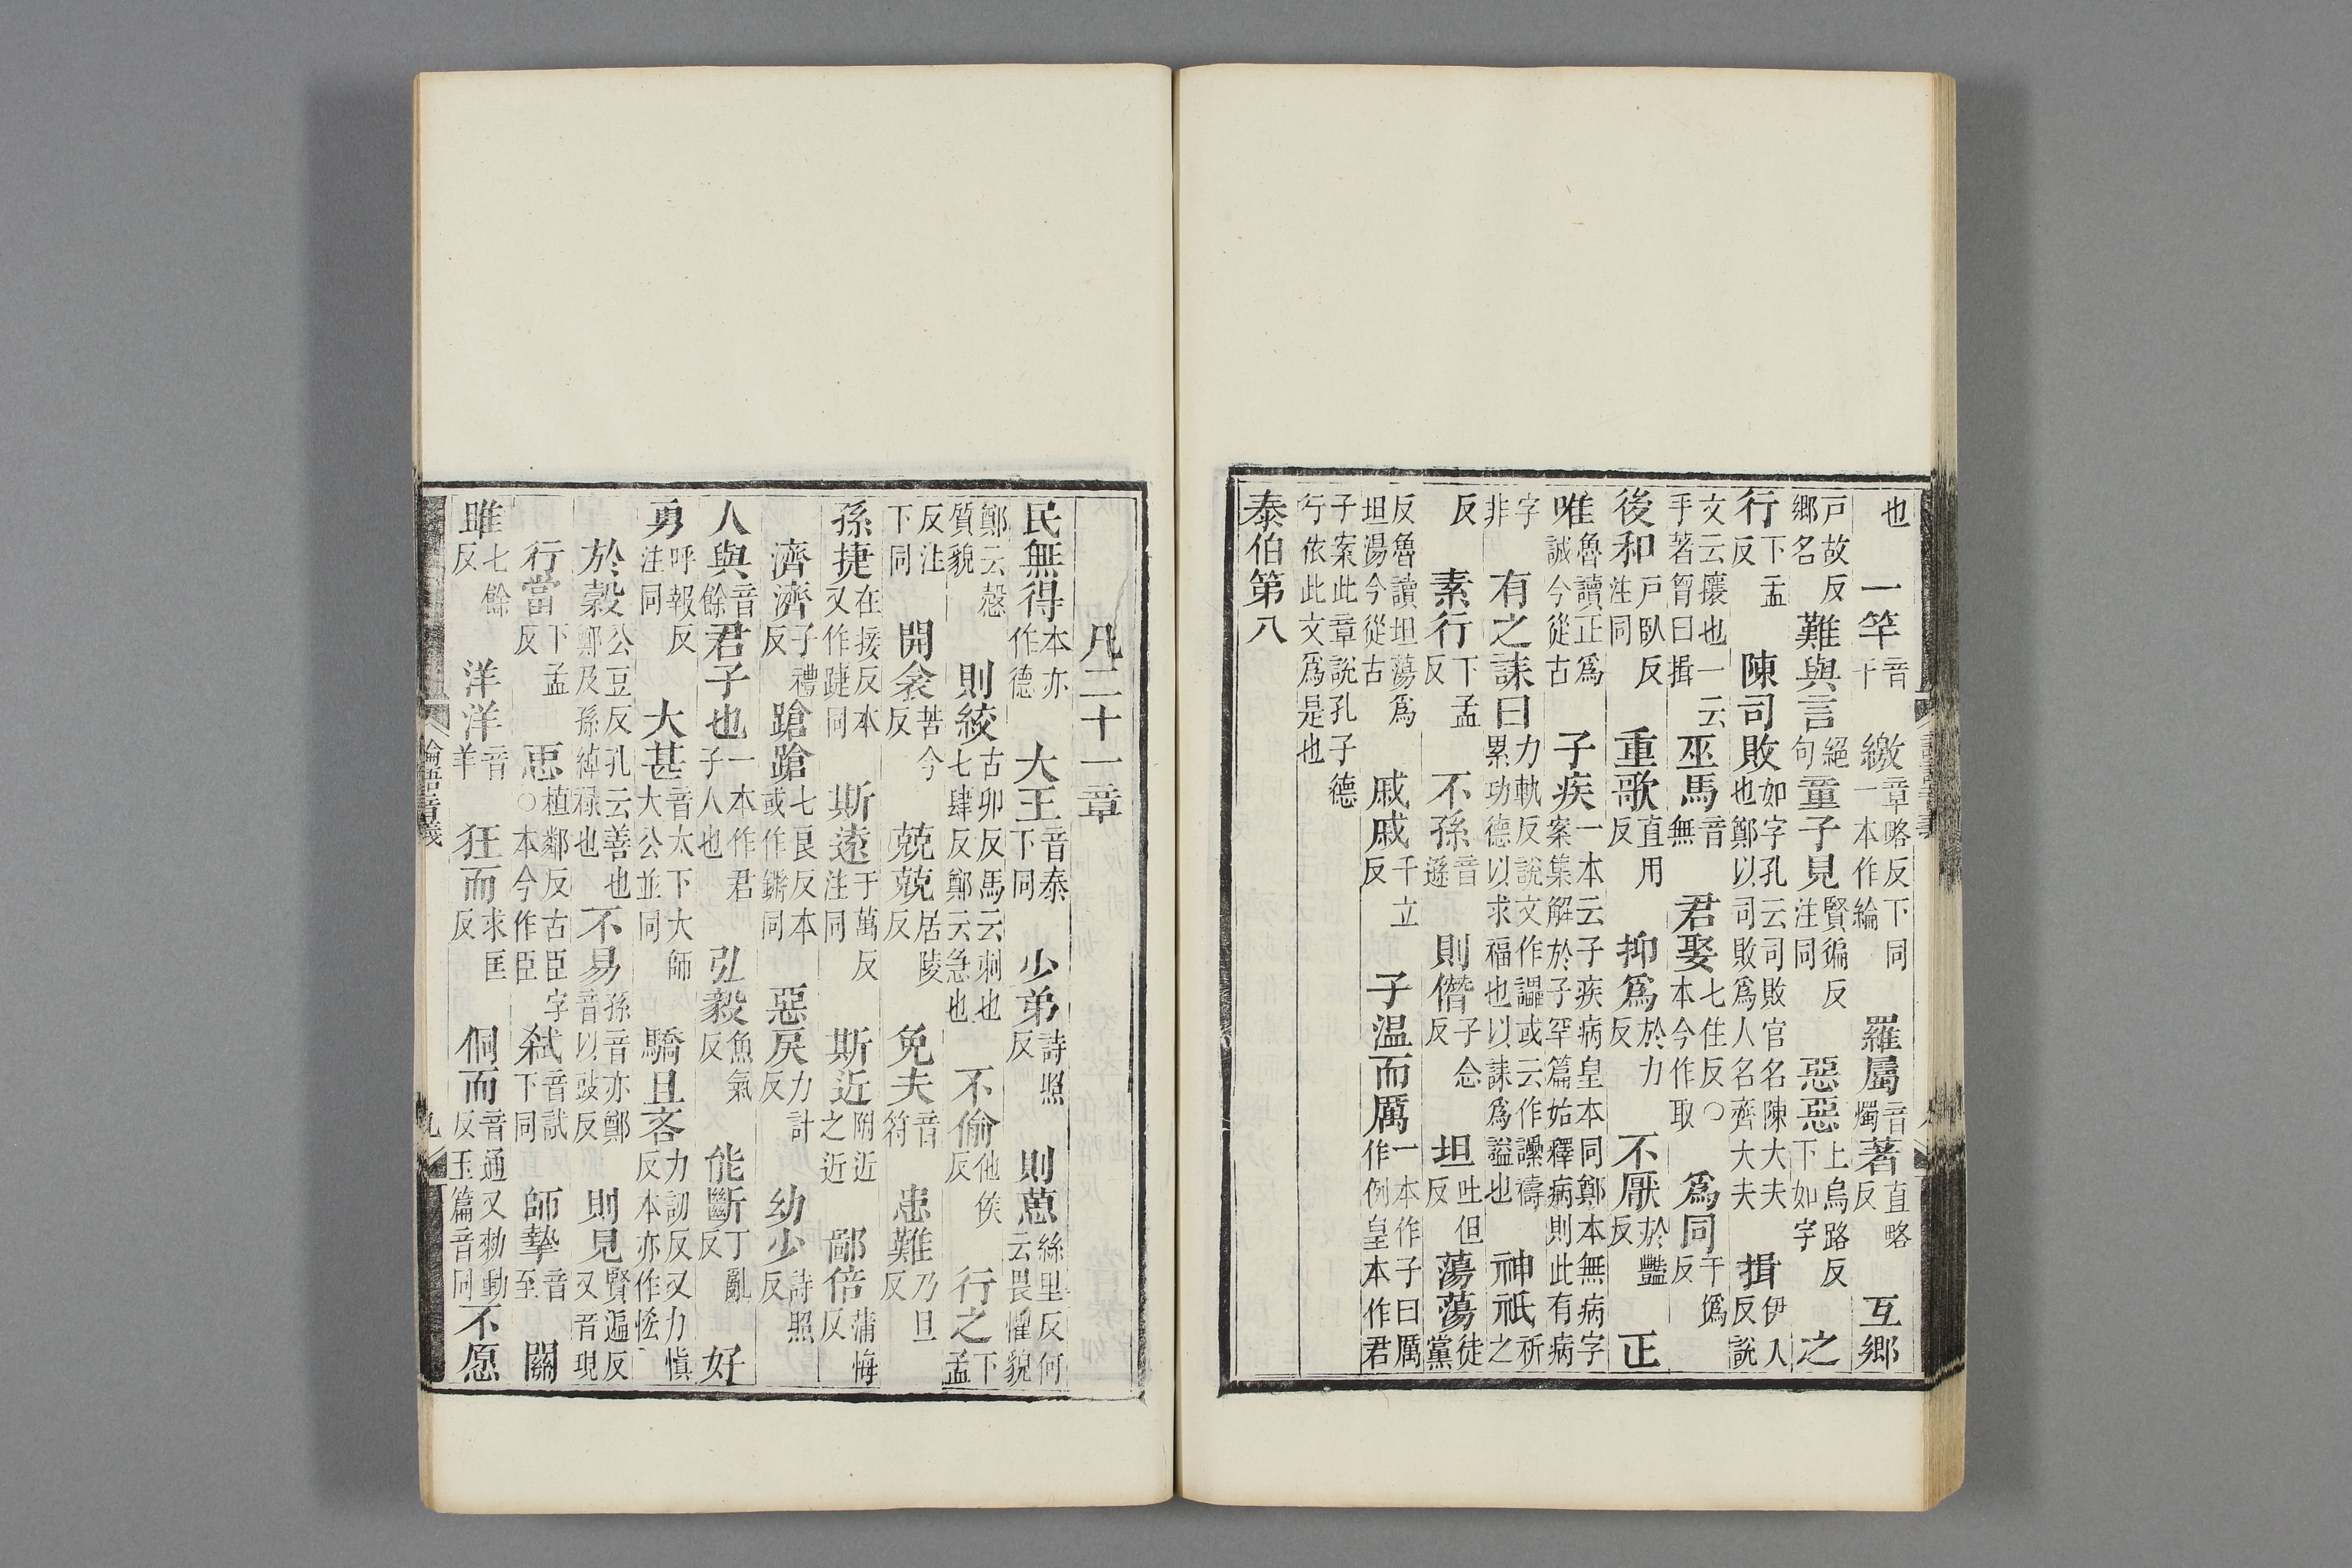 也 一竿音干 繳章略反下同一本作綸 羅屬音燭著直略反 互鄉
戶故反鄉名 難與言絕句童子見賢徧反注同 惡惡上烏路反下如字 之
行下孟反 陳司敗如字孔云司敗官名陳大夫也鄭以司敗爲人名齊大夫 揖伊入反說
文云攘也一云手著胷曰揖 巫馬音無 君娶七住反○本今作取 爲同于僞反
後和戶臥反注同 重歌直用反 抑爲於力反 不厭於豔反 正
唯魯讀正爲誠今從古 子疾一本云子疾病皇本同鄭本無病字案集解於子罕篇始釋病則此有病
字非 有之誄曰力軌反說文作讄或云作讄禱累功德以求福也以誄爲謚也 神祇祈之
反 素行下孟反 不孫音遜 則僭子念反 坦吐但反 蕩蕩徒黨
反魯讀坦蕩爲坦湯今從古 戚戚千立反 子温而厲一本作子曰厲作例皇本作君
子案此章說孔子德行依此文爲是也
泰伯第八
凡二十一章
民無得本亦作德 大王音泰下同 少弟詩照反 則葸絲里反何云畏懼貌
鄭云慤質貌 則絞古卯反馬云刺也七肆反鄭云急也 不偷他侯反 行之下孟
反注下同 開衾苦今反 兢兢居陵反 免夫音符 患難乃旦反
孫捷在接反本又作踕同 斯遠于萬反注同 斯近附近之近 鄙倍蒲悔反
濟濟子禮反 蹌蹌七良反本或作鏘同 惡戾力計反 幼少詩照反
人與音餘 君子也一本作君子人也 弘毅魚氣反 能斷丁亂反 好
勇呼報反注同 大甚音太下大師大公並同 驕且吝力訒反又力愼反本亦作悋
於穀公豆反孔云善也鄭及孫綽祿也 不易孫音亦鄭音以豉反 則見賢遍反又音現
行當下孟反 𢘑植鄰反古臣字○本今作臣 弑音試下同 師摯音至 關
雎七餘反 洋洋音羊 狂而求匡反 侗而音通又勑動反玉篇音同 不愿
論語音義
九